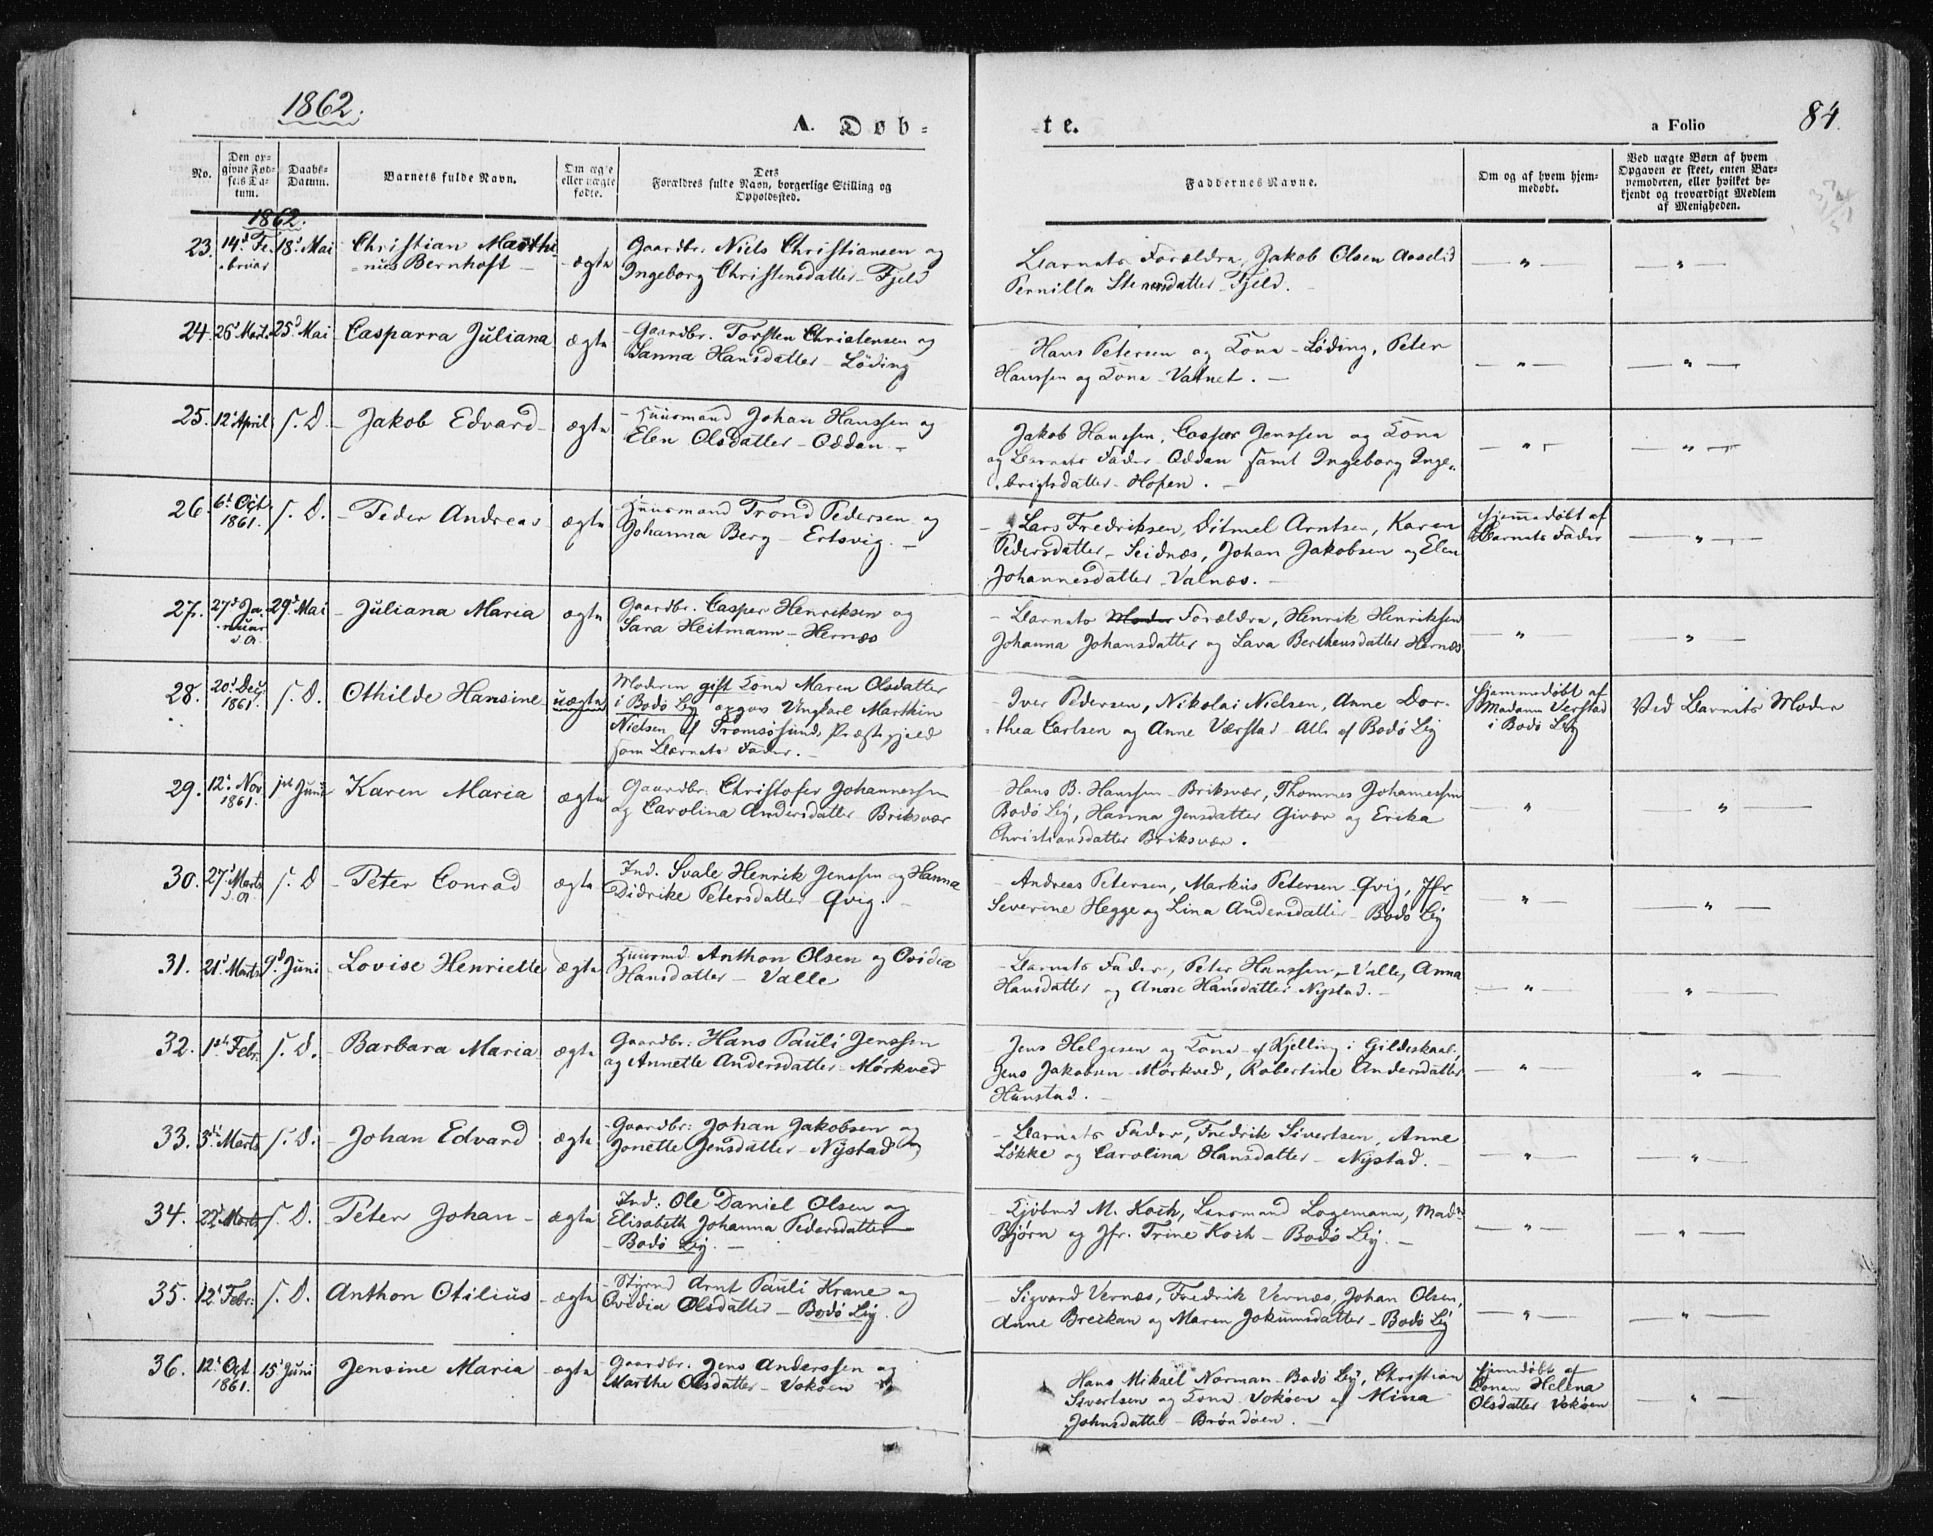 1862.
A. Döb-
te.
a Folio
84.
No.
Den op-
givne Fød-
sels Da-
tum.
Daabs-
Datum.
Barnets fulde Navn.
Om ægte
eller uægte
fødte.
Dets
Forældres fulde Navn, borgerlige Stilling og
Opholdssted.
Faddernes Navne.
Om og af hvem hjem-
medøbt.
Ved uægte Børn af hvem
Opgaven er skeet, enten Bar-
nemoderen, eller hvilket be-
kjendt og troværdigt Medlem
af Menigheden.
1862.
23. 14d Fe- 18d Mai Christian Marthi-
bruar
nus Bernhoft — ægte
Gaardbr. Niels Christiansen og
Ingeborg Christensdatter - Fjeld
Barnets Forældre, Jakob Olsen Aaselid
Pernilla Stensdatter - Fjeld.
— " —
— " —
24. 26d Marts 25d Mai Casparra Juliana ægte
Gaardbr. Torsten Christensen og
Sanna Hansdatter - Löding
Hans Petersen og Kona - Löding, Peter
Hanssen og Kona - Vatnet. —
— " —
— " —
25. 12t April S. D. - Jakob Edvard - ægte
Huusmand Johan Hanssen og
Elen Olsdatter - Oddan. -
Jakob Hanssen, Casper Jenssen og Kona
og Barnets Fader - Oddan samt Ingeborg Inge-
brigtsdatter - Hopen. —
— " —
— " —
26. 6t Oct. 1861. S. D. - Peder Andreas - ægte
Huusmand Trond Pedersen og
Johanna Berg - Ertsvig. —
- Lars Fredriksen, Ditmel Arntsen, Karen
Pedersdatter - Seidnæs, Johan Jakobsen og Elen
Johannesdatter - Valnæs. -
Hjemmedöbt af
Barnets Fader
— " —
27. 27d Ja- 29d Mai - Juliana Maria ægte
nuar
d. A.
Gaardbr. Casper Henriksen og
Sara Heitmann - Hernæs
- Barnets Moder Forældre, Henrik Henriksen
Johanna Johansdatter og Lava Bertheusdatter Hernæs
— " —
— " —
28. 20d Decb. 1861. S. D. Othilde Hansine uægte
Moderen gift Kona Maren Olsdatter
i Bodö By opgav Ungkarl Marthin
Nielsen af Tromsösunds Præstegjeld
som Barnets Fader. -
- Iver Pedersen, Nikolai Nielsen, Anne Dor-
thea Carlsen og Anne Værstad - Alle af Bodö By
Hjemmedöbt af
Madam Verstad
i Bodö By
Ved Barnets Moder
29. 12t Nov 1861. 1ste Juni - Karen Maria ægte
Gaardbr. Christofer Johannessen
og Carolina Andersdatter Briksvær
Hans B. Hanssen - Briksvær, Thommes Johannessen
Bodö By, Hanna Jensdatter Givær og Erika
Christiansdatter Briksvær.
— " —
— " —
30. 27d Marts d. A. S. D. - Peter Conrad ægte
Ind. Svale Henrik Jenssen og Hanna
Didrike Petersdatter - Qvig. -
- Andreas Petersen, Markus Petersen - Qvig, Jfr
Severine Hegge og Lina Andersdatter - Bodö By
— " —
— " —
31. 21d Marts 9d Juni - Lovise Henriette ægte
Huusmd. Anthon Olsen og Ovidia
Hansdatter - Valle
- Barnets Fader, Peter Hanssen, - Valle, Anna
Hansdatter og Anne Hansdatter Nystad. -
— " —
— " —
32. 1ste Febr. S. D. - Barbara Maria ægte
Gaardbr. Hans Pauli Jenssen
og Annette Andersdatter - Mörkved
- Jens Helgesen og Kona - af Kjelling i Gildeskaal,
Jens Jakobsen - Mörkved, Robertine Andersdatter
Hunstad. -
— " —
— " —
33. 3die Marts S. D. - Johan Edvard ægte
Gaardbr: Johan Jakobsen og
Jonette Jensdatter - Nystad
- Barnets Fader, Fredrik Sivertsen, Anne
Lökke og Carolina Hansdatter - Nystad. -
— " —
— " —
34. 22d Marts S. D. - Peter Johan - ægte
Ind: Ole Daniel Olsen og
Elisabeth Johanna Pedersdatter
- Bodö By. -
- Kjöbmd M. Koch, Lensmand Lagemann, Madm
Björn og Jfr. Trine Koch - Bodö By. -
— " —
— " —
35. 12t Febr. S. D. Anthon Otilius - ægte
Styrmd Arnt Pauli Krane og
Ovidia Olsdatter - Bodö By.
- Sigvard Vernæs, Fredrik Vernæs, Johan Olsen,
Anne Breikan og Maren Jokumsdatter - Bodö By
— " —
— " —
36. 12t Oct. 1861. 15t Juni Jensine Maria - ægte
Gaardbr. Jens Anderssen og
Marthe Olsdatter - Voköen
Hans Mikael Norman - Bodö By, Christian
Sivertsen og Kona Voköen og Mina
Johnsdatter - Bröndöen. -
Hjemdöbt af
Konen Helena
Olsdatter Voköen
— " —